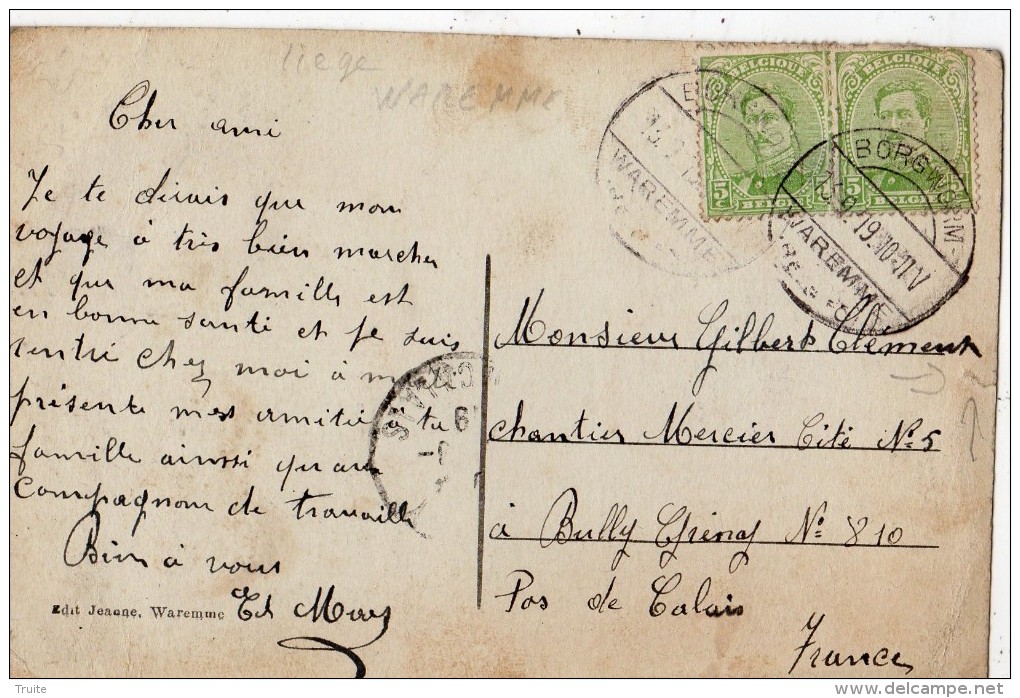 liege
WAREMME
Cher ami
Je te dirais que mon
voyage à très bien marcher
et que ma famille est
en bonne santé et je suis
rentré chez moi à midi
présente mes amitié à ta
famille ainsi qu'aux
Compagnon de travaille
Bien à vous
Edit Jeanne, Waremme
BELGIQUE
BELGIQUE
5c
BELGIE
5c
BELGIE
WAREMME
BORGWORM-
WAREMME
Monsieur Gilbert Clément
chantier Mercier Cité No 5
à Bully Grenay No 810
Pas de Calais
France
Truite
www.delcampe.net